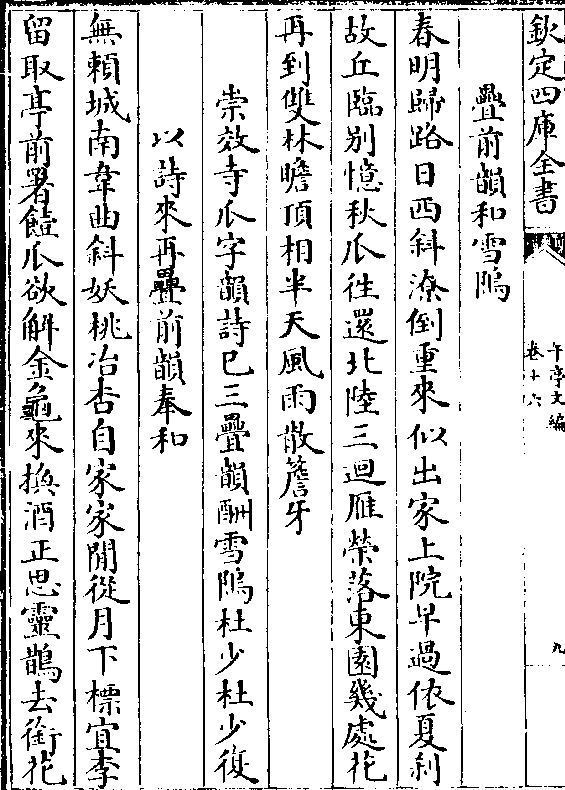 欽定四庫全書
午亭文編
卷十六
九
疊前韻和雪鴻
春明歸路日西斜潦倒重來似出家上院早過依夏刹
故丘臨别憶秋瓜往還北陸三迴雁榮落東園幾處花
再到雙林瞻頂相半天風雨散簷牙
崇效寺瓜字韻詩已三疊韻酬雪鴻杜少杜少復
以詩來再疊前韻奉和
無賴城南韋曲斜妖桃冶杏自家家閒從月下標宜李
留取亭前署饐瓜欲解金龜來換酒正思靈鵲去銜花